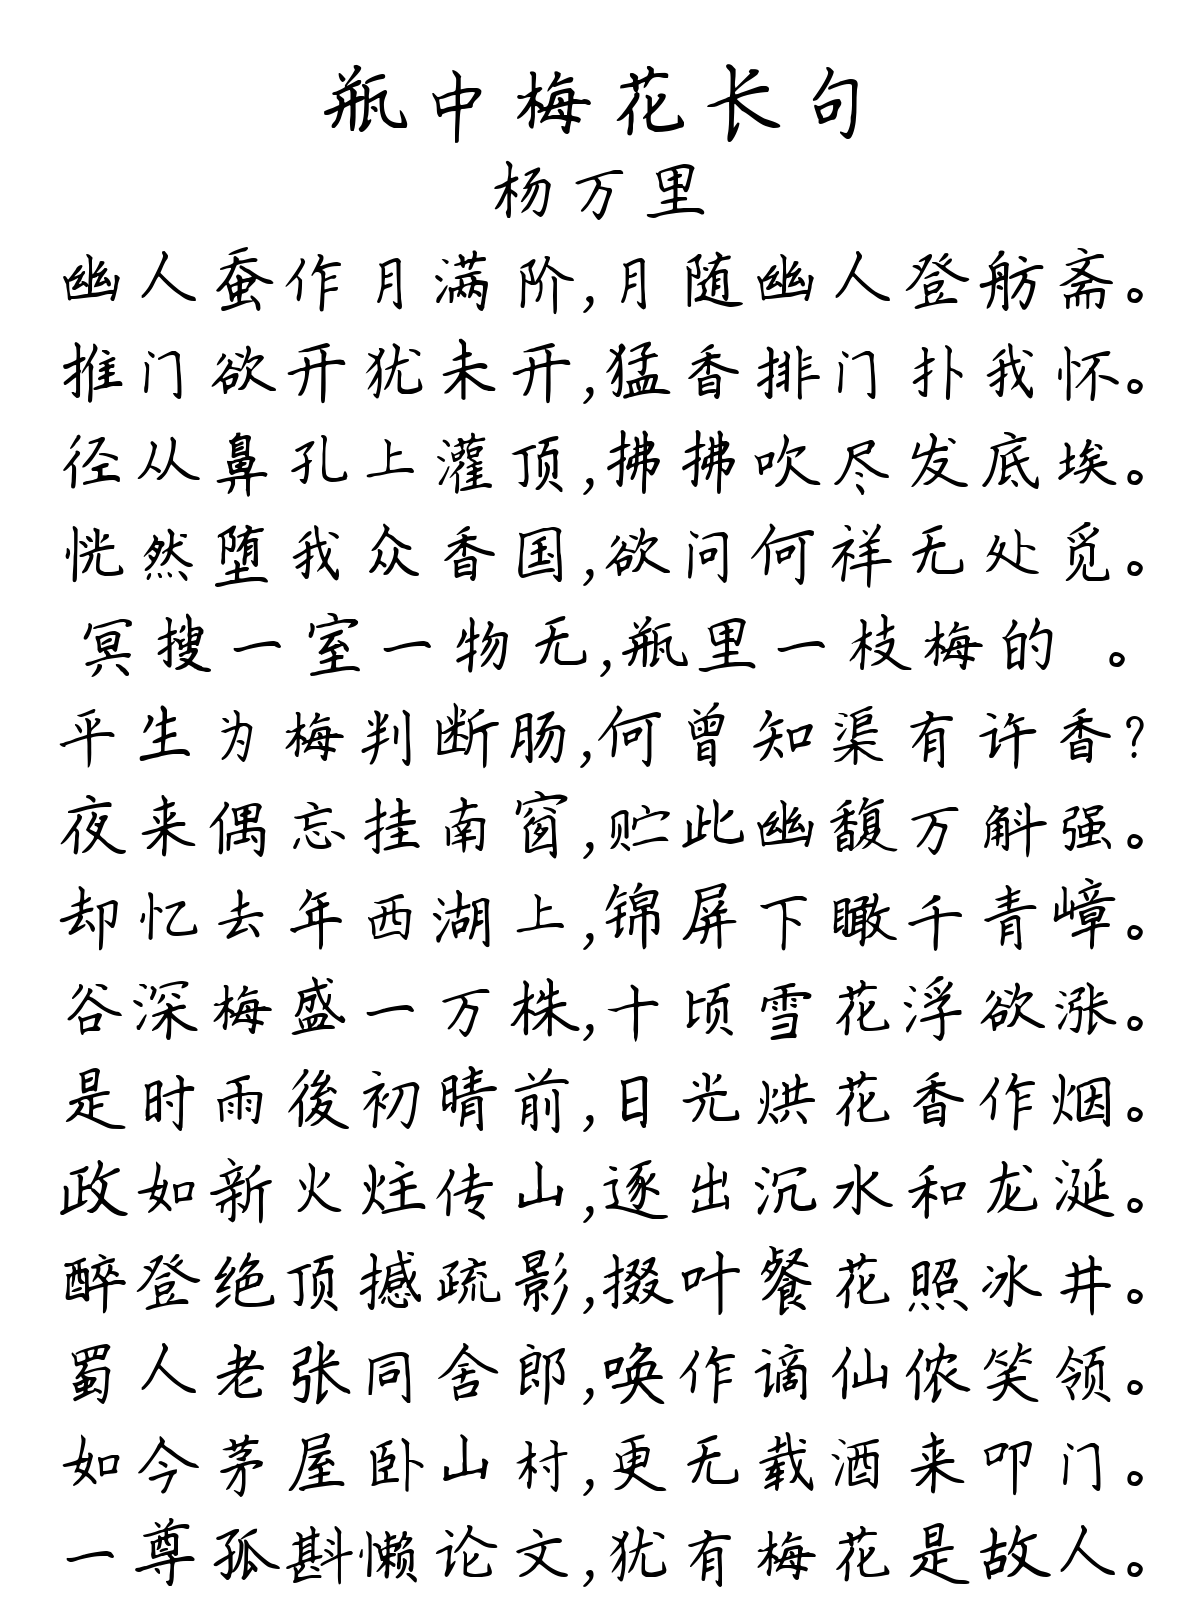 瓶中梅花长句
杨万里
幽人蚤作月满阶,月随幽人登舫斋。
推门欲开犹未开,猛香排门扑我怀。
径从鼻孔上灌顶,拂拂吹尽发底埃。
恍然堕我众香国,欲问何祥无处觅。
冥搜一室一物无,瓶里一枝梅的 。
平生为梅判断肠,何曾知渠有许香?
夜来偶忘挂南窗,贮此幽馥万斛强。
却忆去年西湖上,锦屏下瞰千青嶂。
谷深梅盛一万株,十顷雪花浮欲涨。
是时雨後初晴前,日光烘花香作烟。
政如新火炷传山,逐出沉水和龙涎。
醉登绝顶撼疏影,掇叶餐花照冰井。
蜀人老张同舍郎,唤作谪仙侬笑领。
如今茅屋卧山村,更无载酒来叩门。
一尊孤斟懒论文,犹有梅花是故人。